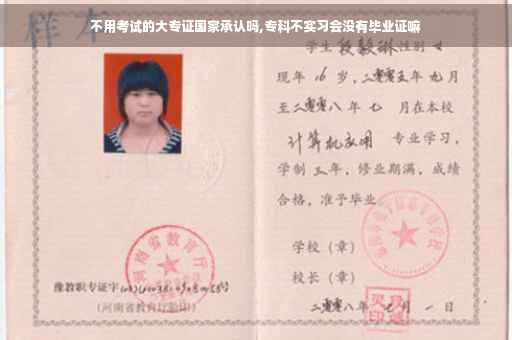 不用考试的大专证国家承认吗,专科不实习会没有毕业证嘛
样本
学生段毅琳性别女
现年16岁，二零零五年九月
至二零零八年七月在本校
计算机应用 专业学习，
学制三年，修业期满，成绩
合格，准予毕业。
学校（章）
校长（章）
二零零八年七月一日
河南省教育厅
豫教职专证字
（河南省教育厅验印）